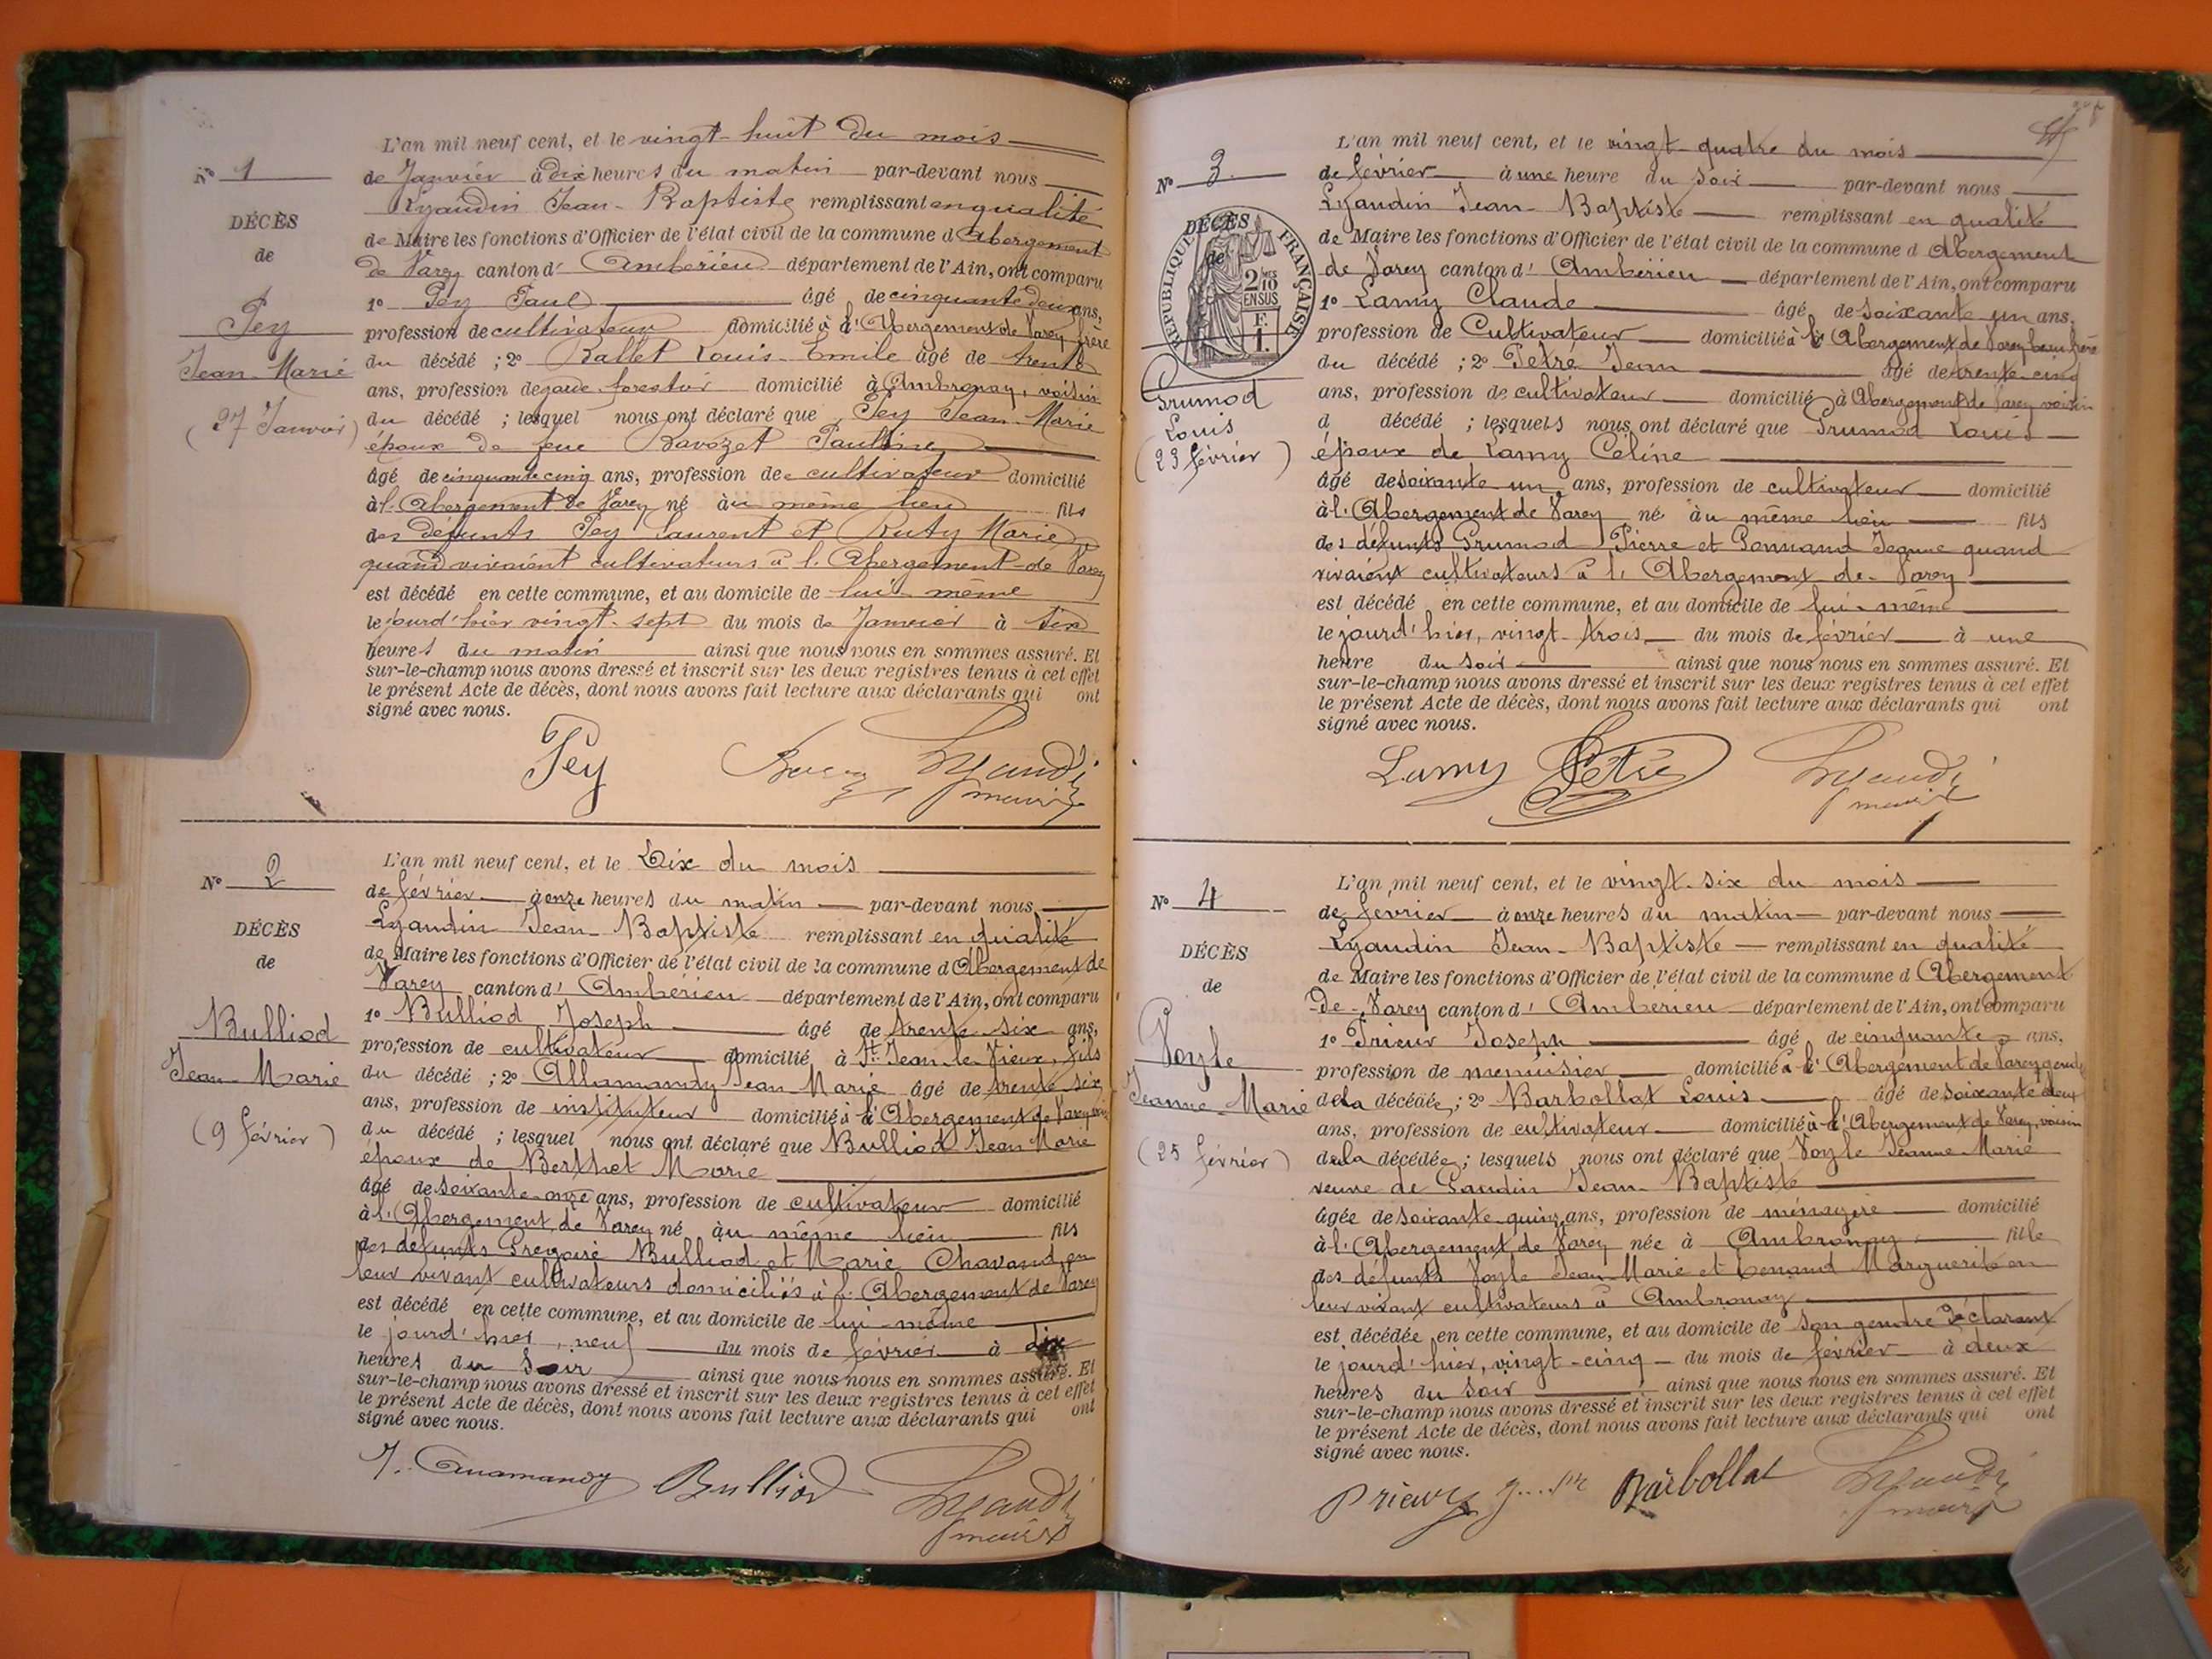 L'an mil neuf cent, et le vingt-huit du mois
Nº 1
de Janvier à dix heures du matin par-devant nous
Lyaudin Jean-Baptiste remplissant en qualité
DÉCÈS
de Maire les fonctions d'Officier de l'état civil de la commune d Abergement
de
de Varey canton d' Amberieu département de l'Ain, ont comparu
1º Pey Paul âgé de cinquante deux ans,
Pey
profession de cultivateur domicilié à l'Abergement de Varey frère
Jean-Marie
du décédé ; 2º Ballet Louis-Emile âgé de trente
ans, profession de garde forestier domicilié à Ambronay, voisin
(27 Janvier)
du décédé ; lesquel nous ont déclaré que Pey Jean-Marie
époux de feue Bavozet Pauline
âgé de cinquante cinq ans, profession de cultivateur domicilié
à l'Abergement de Varey né à u même lieu fils
des défunts Pey Laurent et Ruty Marie
quand vivaient cultivateurs à l'Abergement-de Varey
est décédé en cette commune, et au domicile de lui-même
le jourd'hier vingt-sept du mois de Janvier à six
heures du matin ainsi que nous nous en sommes assuré. Et
sur-le-champ nous avons dressé et inscrit sur les deux registres tenus à cet effet
le présent Acte de décès, dont nous avons fait lecture aux déclarants qui ont
signé avec nous.
Pey
Lyaudin
maire
L'an mil neuf cent, et le Dix du mois
Nº 2
de février à onze heures du matin par-devant nous
Lyaudin Jean-Baptiste remplissant en qualité
DÉCÈS
de Maire les fonctions d'Officier de l'état civil de la commune d Abergement de
de
Varey canton d' Ambérieu département de l'Ain, ont comparu
1º Bulliod Joseph âgé de trente-six ans,
Bulliod
profession de cultivateur domicilié à St Jean-le-Vieux, fils
Jean-Marie
du décédé ; 2º Allamandy Jean Marie âgé de trente six
ans, profession de instituteur domicilié à l'Abergement de Varey,
(9 février)
du décédé ; lesquel nous ont déclaré que Bulliod Jean Marie
époux de Berthet Marie
âgé de soixante-onze ans, profession de cultivateur domicilié
à l'Abergement de Varey né à u même lieu fils
des défunts Gregoire Bulliod et Marie Chavand en
leur vivant cultivateurs domiciliés à l'Abergement de Varey
est décédé en cette commune, et au domicile de lui-même
le jourd'hier, neuf du mois de février à dix
heures du Soir ainsi que nous nous en sommes assuré. Et
sur-le-champ nous avons dressé et inscrit sur les deux registres tenus à cet effet
le présent Acte de décès, dont nous avons fait lecture aux déclarants qui ont
signé avec nous.
J. Allamandy Bulliod Lyaudin
maire
L'an mil neuf cent, et le vingt quatre du mois
Nº 3
de février à une heure du soir par-devant nous
Lyaudin Jean-Baptiste remplissant en qualité
DÉCÈS
de
RÉPUBLIQUE FRANÇAISE
2/10 MES
EN SUS
F.
1.
de Maire les fonctions d'Officier de l'état civil de la commune d Abergement
de Varey canton d' Ambérieu département de l'Ain, ont comparu
1º Lamy Claude âgé de soixante un ans,
profession de Cultivateur domicilié à l'Abergement de Varey beau frère
du décédé ; 2º Petre Jean âgé de trente-cinq
Grumod
ans, profession de cultivateur domicilié à Abergement de Varey voisin
Louis
d décédé ; lesquels nous ont déclaré que Grumod Louis
(23 février)
époux de Lamy Céline
âgé de soixante un ans, profession de cultivateur domicilié
à l'Abergement de Varey né à u même lieu fils
des défunts Grumod Pierre et Jeanne quand
vivaient cultivateurs à l'Abergement-de-Varey
est décédé en cette commune, et au domicile de lui-même
le jourd'hier, vingt-trois du mois de février à une
heure du soir ainsi que nous nous en sommes assuré. Et
sur-le-champ nous avons dressé et inscrit sur les deux registres tenus à cet effet
le présent Acte de décès, dont nous avons fait lecture aux déclarants qui ont
signé avec nous.
Lamy Petre Lyaudin
maire
L'an mil neuf cent, et le vingt-six du mois
Nº 4
de février à onze heures du matin par-devant nous
Lyaudin Jean-Baptiste remplissant en qualité
DÉCÈS
de Maire les fonctions d'Officier de l'état civil de la commune d Abergement
de
De-Varey canton d' Amberieu département de l'Ain, ont comparu
1º Prieur Joseph âgé de cinquante ans,
Voyle
profession de menuisier domicilié à l'Abergement de Varey gendre
Jeanne-Marie
de la décédée ; 2º Barbollat Louis âgé de soixante deux
ans, profession de cultivateur domicilié à l'Abergement de Varey, voisin
(25 février)
de la décédée ; lesquels nous ont déclaré que Voyle Jeanne-Marie
veuve de Gaudin Jean-Baptiste
âgée de soixante-quinze ans, profession de ménagère domicilié
à l'Abergement de Varey née à Ambronay fille
des défunts Voyle Jean-Marie et Marguerite en
leur vivant cultivateurs à Ambronay
est décédée en cette commune, et au domicile de son gendre déclarant
le jourd'hier, vingt-cinq du mois de février à deux
heures du soir ainsi que nous nous en sommes assuré. Et
sur-le-champ nous avons dressé et inscrit sur les deux registres tenus à cet effet
le présent Acte de décès, dont nous avons fait lecture aux déclarants qui ont
signé avec nous.
Prieur Barbollat Lyaudin
maire